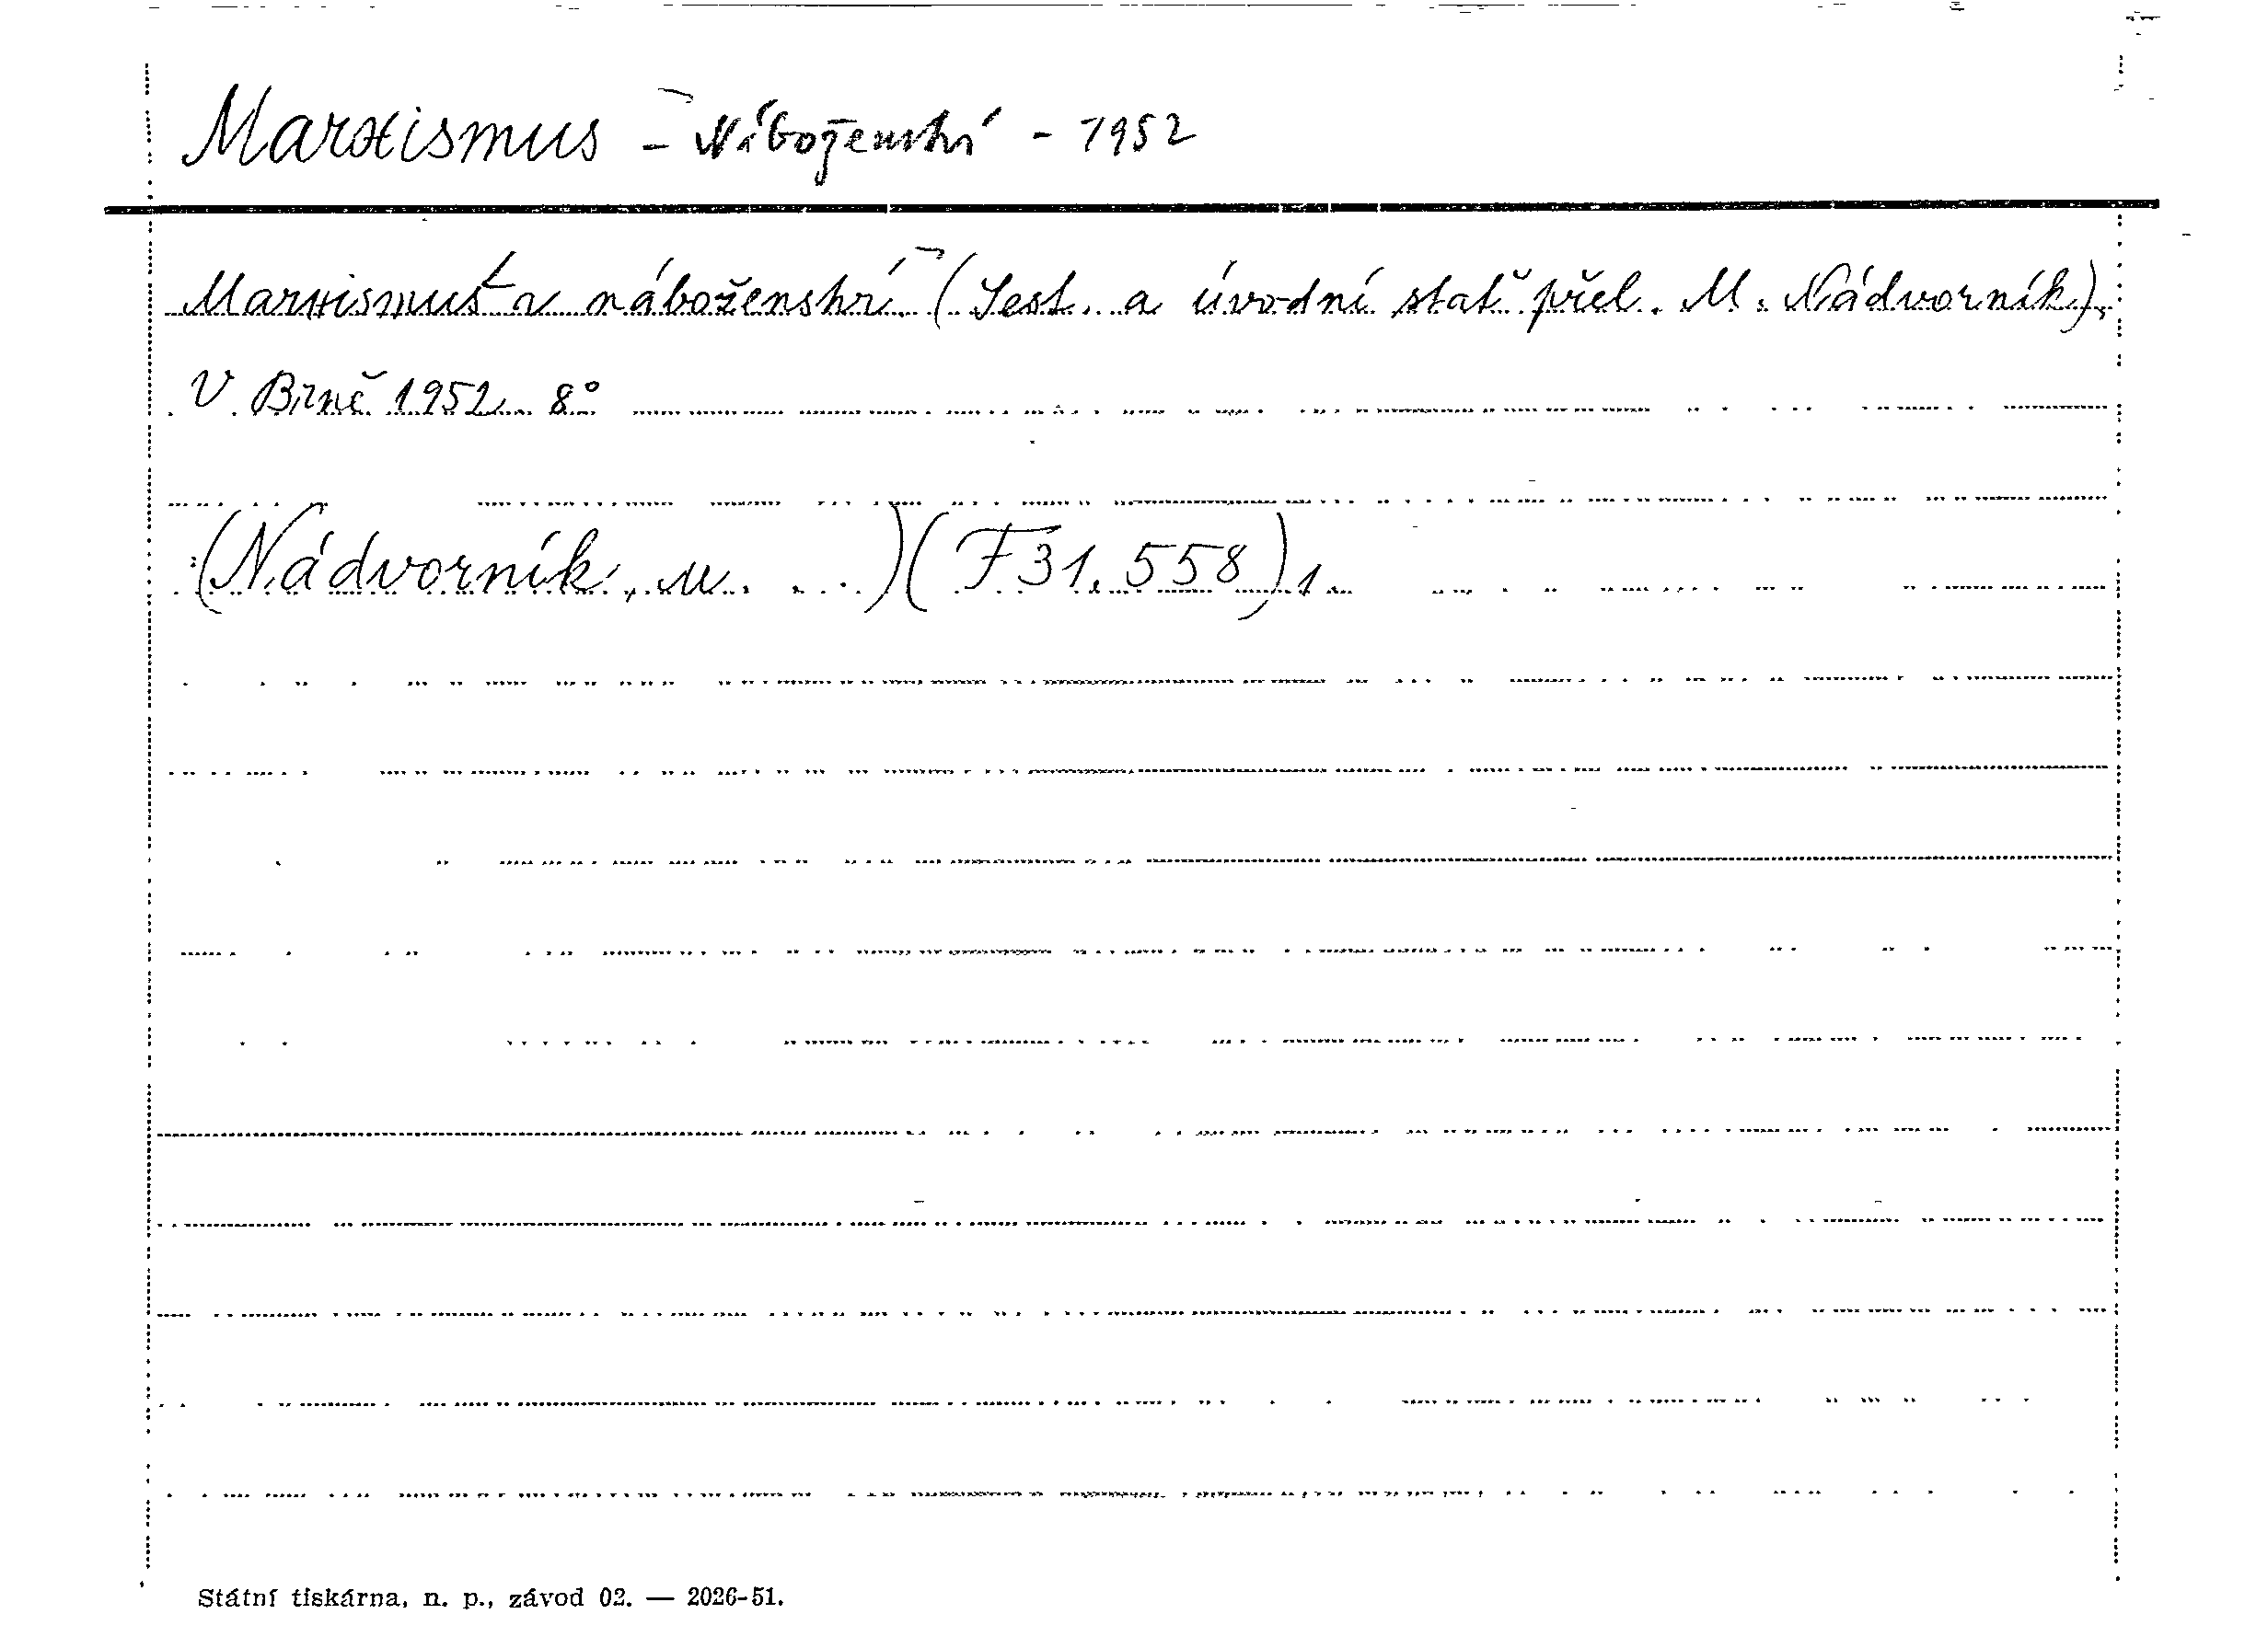 Marxismus - Náboženství - 1952
Marxismus a náboženství. (Sest. a úvodní stať přel. M. Nádvorník).
V Brně 1952. 8°
(Nádvorník, M. ...) (F 31.558) 1.
Státní tiskárna, n. p., závod 02. — 2026-51.